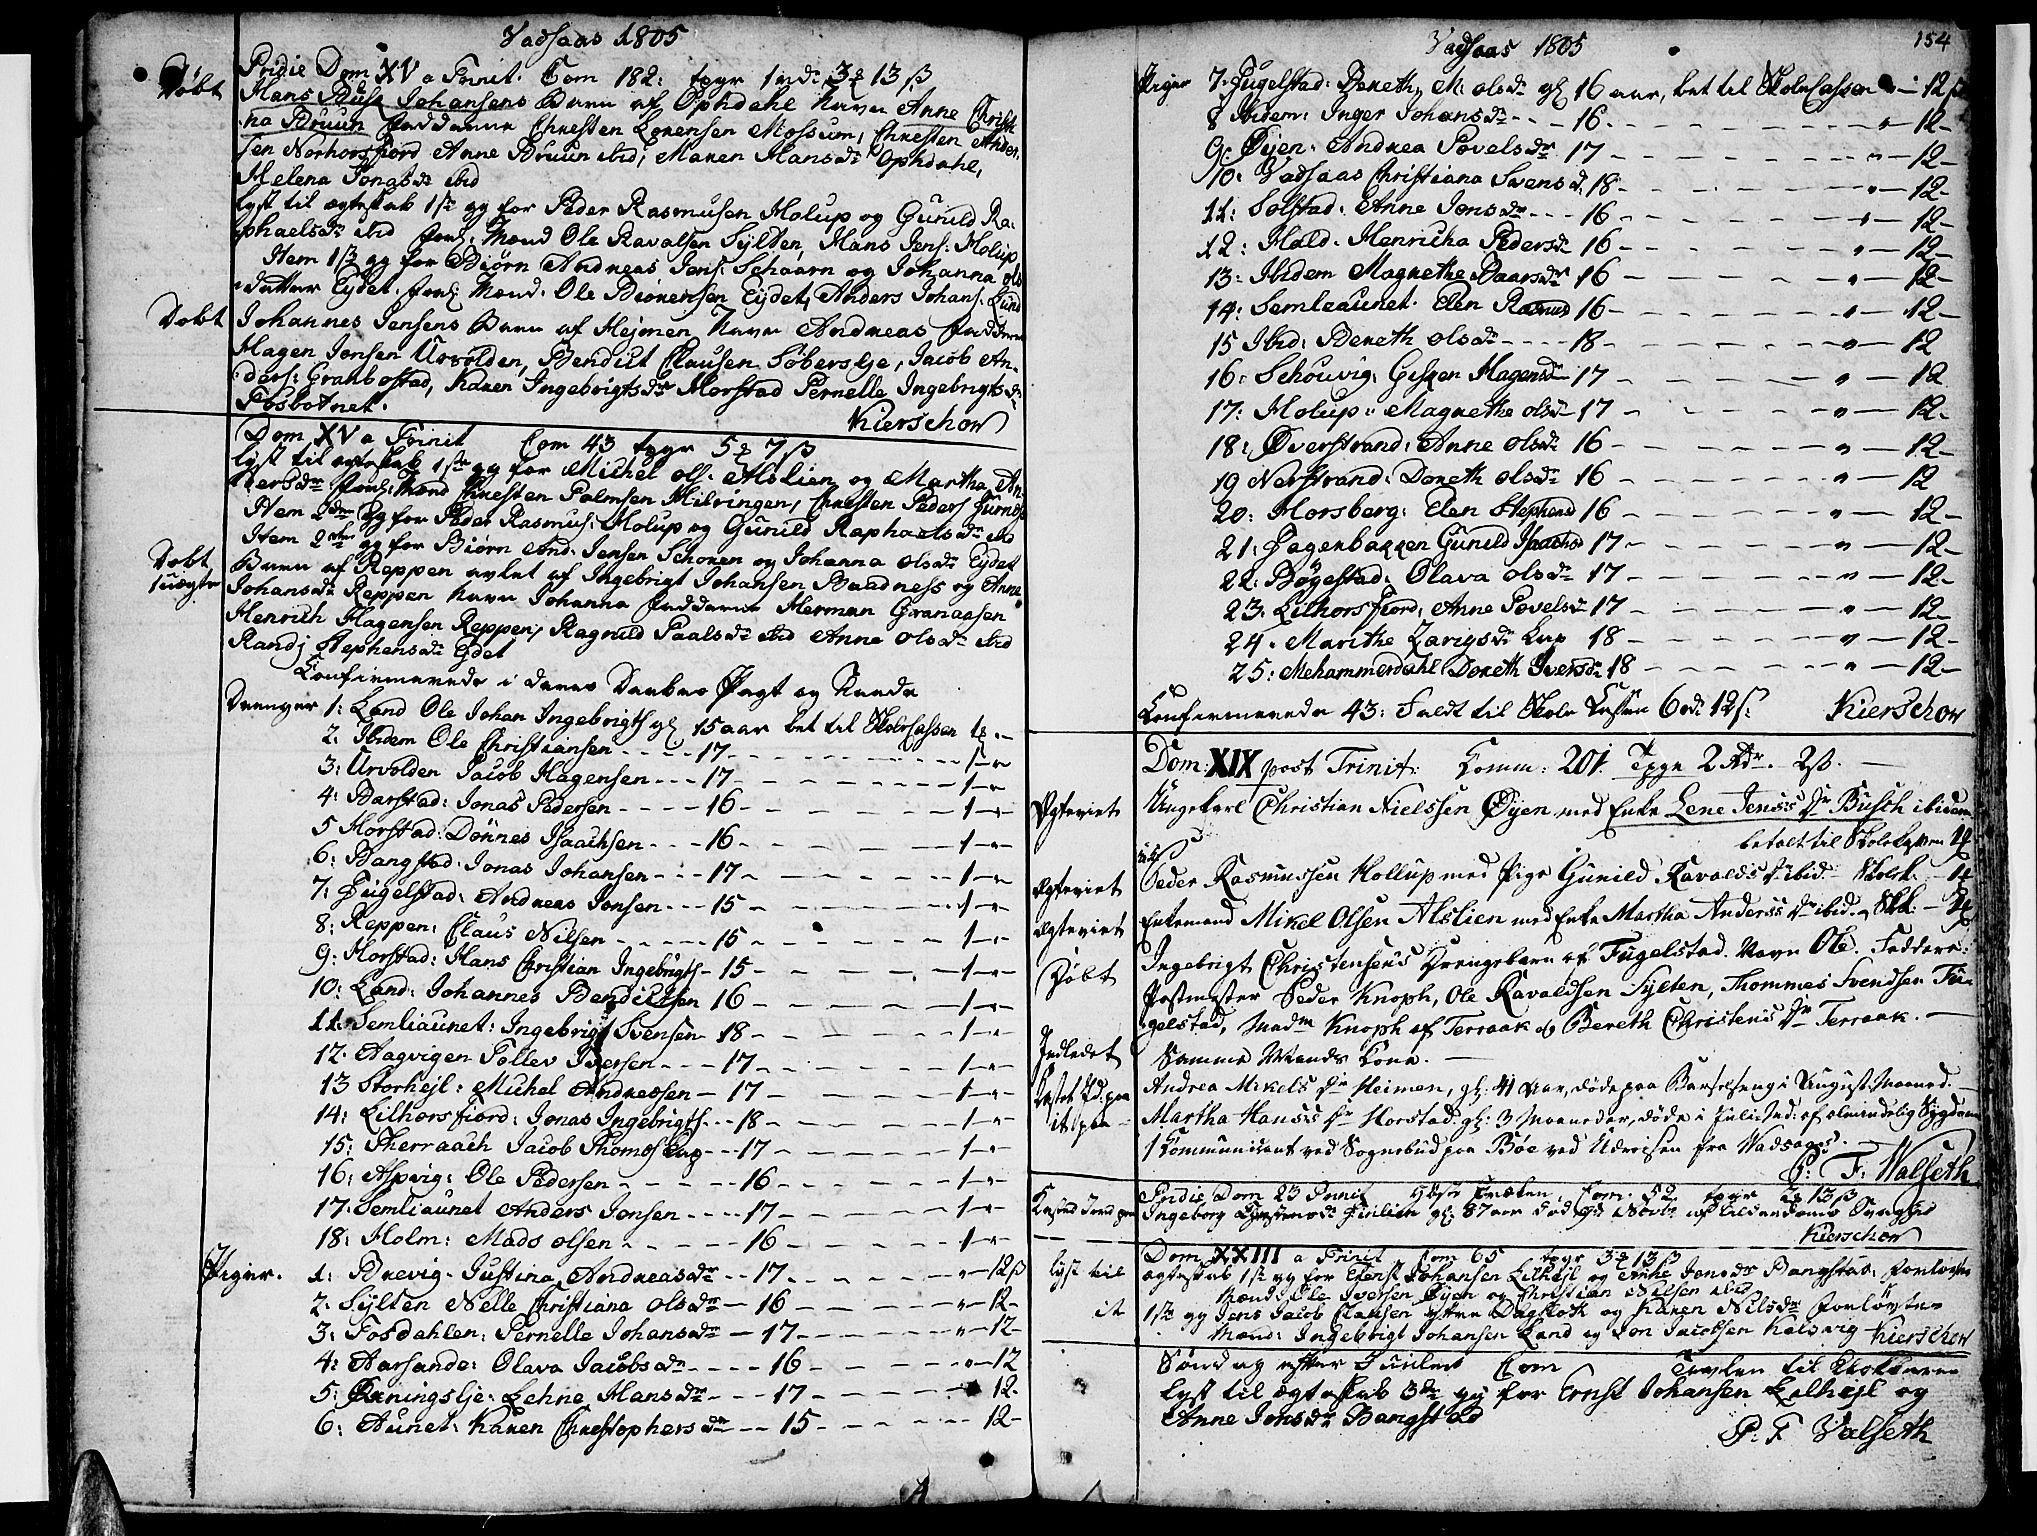 Vadsaas 1805
Døbt
Pridie Dom XV a Trinit. Com 182: 13 ß
Hans Bük Johansens Barn af Ophdahl Navn Anne Christi
na Bruun Faddere Chresten Lorensen Mossum, Chresten Ander
sen Norhorsfiord Anne Bruun ibid, Maren Hans dr Ophdahl,
Helena Jonas dr ibid
lyst til ægteskab 1ste gg for Peder Rasmusen Holup og Gunild Ra-
phaels dr ibid forl. Mænd Ole Ravalsen Sylten, Hans Jens: Holup
Item 1ste gg for Biørn Andreas Jens: Schaarn og Johanna ols
datter Eydet. forl. Mænd. Ole Biørensen Eydet, Anders Johans: Lund
Døbt
Johannes Jensens Barn af Hejmen Navn Andreas Faddere
Hagen Jonsen Urvolden, Bendict Clausen Søberslje, Jacob An-
ders: Granbostad, Karen Ingebrigts dr Horstad Pernelle Ingebrigts dr
Fosbotnet.
Kierschow
Dom XV a Trinit Com 43 5 7 ß
lyst til ægteskab 1ste gg for Michel ols. Alslien og Martha An-
ders dr forl: Mænd Chresten Palmsen Hilringen, Chresten Peders
Item 2den gg for Peder Rasmus: Holup og Gunild Raphaels dr ibd
Item 2den gg for Biørn And. Jensen Schoren og Johanna ols dr Eydet
Døbt
1 uægte
Barn af Reppen avlet af Ingebrigt Johansen Baadness og Anne
Johans dr Reppen Navn Johanna Faddere Herman Granaasen
Henrich Hagensen Reppen, Ragnild Paals dr ibd Anne ols dr ibd
Randj Stephens dr Eydet
Confirmerede i deres Daabes Pagt og Naade
Drenger 1: Land Ole Johan Ingebrigts gl 15 aar bet til Skolecassen 1
2: Ibidem Ole Christiansen 17 1
3: Urvolden Jacob Hagensen 17 1
4: Barstad: Jonas Pedersen 16 1
5 Horstad: Dønnes Isaachsen 16 1
6: Bangstad: Jonas Johansen 17 1
7: Fugelstad: Andreas Jonsen 15 1
8: Reppen: Claus Nilsen 15 1
9: Horstad: Hans Christian Ingebrigts 15 1
10: Land: Johannes Bendictsen 16 1
11: Semliaunet: Ingebrigt Svensen 18 1
12: Aagvigen Tollev Iversen 17 1
13 Storhejl: Michel Andreasen 17 1
14: Lilhorsfiord: Jonas Ingebrigts 18 1
15: Therraach Jacob Thomes Lap 17 1
16: Aspvig: Ole Pedersen 16 1
17: Semliaunet Anders Jonsen 17 1
18: Holm: Mads olsen 16 1
Piger. 1: Brevig. Justina Andreas dr 17 12 ß
2: Sylten Nelle Christiana ols dr 16 12
3: Fosdahlen: Pernelle Johans dr 17 12
4: Aarsande: Olava Jacobs dr 16 12
5: Lehne Hans dr 17 12
6: Aunet: Karen Chrestophers dr 15 12
Vadsaas 1805
154
Piger 7. Fugelstad: Bereth M. ols dr gl 16 aar, bet til Skolecassen 12 ß
8 Ibidem: Inger Johans dr 16 12
9: Øyen: Andrea Povels dr 17 12
10: Vadsaas Christiana Svens d. 18 12
11: Solstad: Anne Jons dr 16 12
12: Hald: Henricha Peders dr 16 12
13: Ibidem Magrethe Paars dr 16 12
14: Semleaunet. Elen Rasmus 16 12
15 Ibid: Bereth ols dr 18 12
16: Schouvig: Gisken Hagens dr 17 12
17: Holup: Magrethe ols dr 17 12
18: Øverstrand: Anne ols dr 16 12
19 Nerstrand: Doreth ols dr 16 12
20: Horsberg: Elen Stephens 16 12
21: Fagerbakken Gunild Isaachs 17 12
22: Bøgestad: Olava ols dr 17 12
23. Lilhorsfiord: Anne Povels dr 17 12
24. Marithe Larigs dr Lap 18 12
25: Mehammerdahl Doreth Ivers dr 18 12
Confirmerede 43: Faldt til Skole Cassen 6 12 ß.
Kierschow
Dom: XIX post Trinit: Comm: 201. 2 2 ß.
Ægteviet
Ungekarl Christian Nielssen Øyen med Enke Lene Jenss dr Busch ibidem
betalt til Skolekassen
Ægteviet
Peder Rasmussen Hollup med Pige Gunild Ravalds dr ibid.
Ægteviet
Enkemand Mikel Olsen Alslien med Enke Martha Anderss dr ibid.
Døbt
Ingebrigt Christensens Drengebarn af Fugelstad. Navn Ole. Faddere:
Postmester Peder Knoph, Ole Ravaldsen Sylten, Thommes Svendsen Fu-
gelstad, Mad m Knoph af Terraak og Bereth Christens dr Terraak.
Indledet
Samme Mands Kone.
Kastet Jd. paa
Andrea Mikels dr Heimen, gl: 41 Aar, døde paa Barselseng i August Maaned.
it paa
Martha Hanss dr Horstad. gl: 3 Maaneder, døde i Juli af almindelig Sygdom
1 Communicant ved Sognebud paa Bøe ved Udreisen fra Wadsaaes.
P: F: Walseth
Kasted Jord paa
Pridie Dom 23 Trinit Com. 52 13 ß
Ingeborg gl. 87 aar død 9de Novbr af alderdoms Svaghed
Kierschow
lyst til
Dom XXIII a Trinit Com 65 13 ß
ægteskab 1ste gg for Ernst Johansen Lilhejl og Anne Jons dr Bangstad. forlovere
Mænd: Ole Iversen Øyen og Christian Nilsen ibd
it
1ste gg Jens Jacob Clausen Dagslott og Karen Nils dr forlovere
Mænd: Ingebrigt Johansen Land og Jon Jacobsen Kalsvig Kierschow
Søndag efter Juulen Com Tavlen til Klokkeren
lyst til ægteskab 3de gg for Ernst Johansen Lilhejl og
Anne Jons dr Bangstad
P. F Valseth